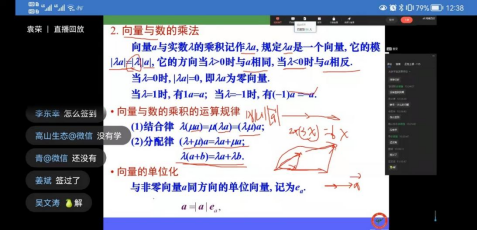 12:38
79%
袁荣 | 直播回放
2. 向量与数的乘法
向量a与实数λ的乘积记作λa, 规定λa是一个向量, 它的模
|λa|=|λ||a|, 它的方向当λ>0时与a相同, 当λ<0时与a相反.
当λ=0时, |λa|=0, 即λa为零向量.
当λ=1时, 有1a=a; 当λ=-1时, 有(-1)a=-a.
• 向量与数的乘积的运算规律
(1)结合律 λ(μa)=μ(λa)=(λμ)a;
(2)分配律 (λ+μ)a=λa+μa;
λ(a+b)=λa+λb.
• 向量的单位化
与非零向量a同方向的单位向量, 记为eₐ.
a=|a|eₐ.
李东幸 怎么签到
高山生态@微信 没有学
青@微信 还没有
姜斌 签过了
吴文涛 解